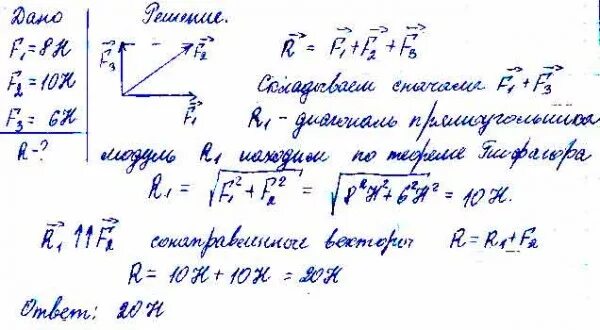 Дано Решение.
F₁ = 8Н
F₂ = 10Н
F₃ = 6Н
R - ?
F₃ F₂
F₁
R = F₁ + F₂ + F₃
Складываем сначала F₁ + F₃
R₁ - диагональ прямоугольника
модуль R₁ находим по теореме Пифагора
R₁ = √F₁² + F₂² = √8²Н² + 6²Н² = 10Н.
R₁ ↑↑ F₂ сонаправленные векторы R = R₁ + F₂
R = 10Н + 10Н = 20Н
Ответ: 20Н